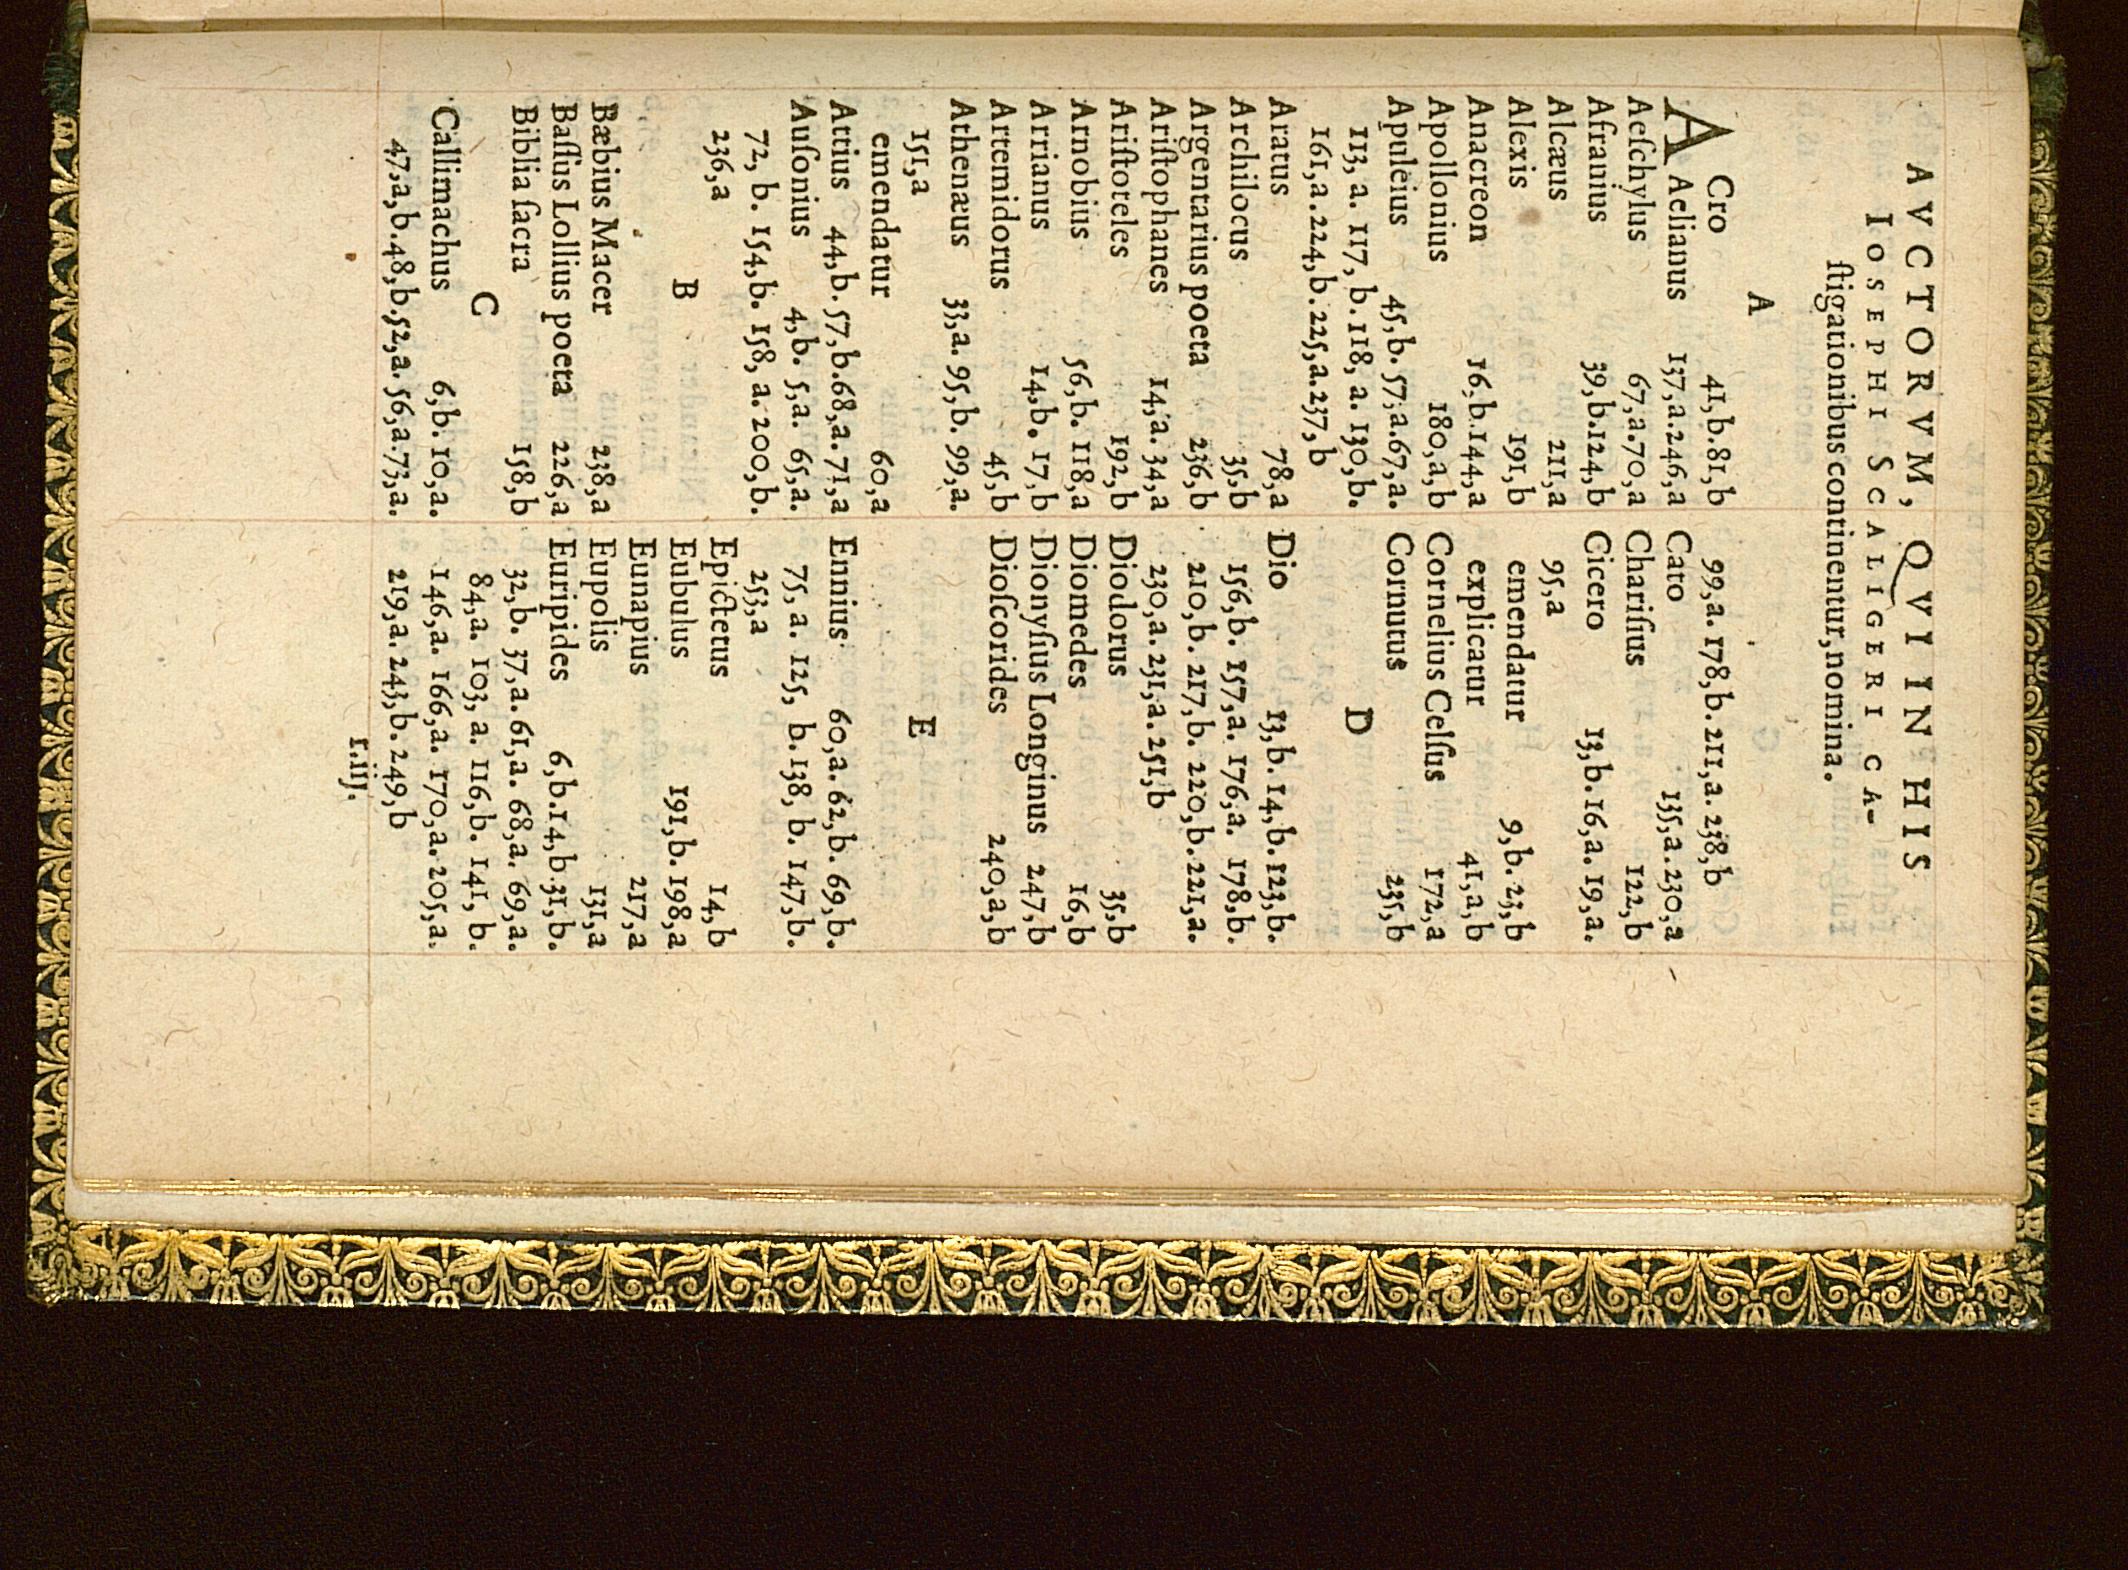 AVCTORVM, QVI IN HIS
IOSEPHI SCALIGERI CA-
ſtigationibus continentur, nomina.
A
ACro 41,b.81,b
Aelianus 137,a.246,a
Aeſchylus 67,a.70,a
Afranius 39,b.124,b
Alcæus 211,a
Alexis 191,b
Anacreon 16,b.144,a
Apollonius 180,a,b
Apuleius 45,b. 57,a.67,a.
113, a. 117, b.118, a. 130,b.
161,a.224,b.225,a.237,b
Aratus 78,a
Archilocus 35,b
Argentarius poeta 236,b
Ariſtophanes 14,a. 34,a
Ariſtoteles 192,b
Arnobius 56,b. 118,a
Arrianus 14,b. 17,b
Artemidorus 45,b
Athenæus 33,a. 95,b. 99,a.
151,a
emendatur 60,a
Attius 44,b. 57,b.68,a. 71,a
Auſonius 4,b. 5,a. 65,a.
72, b. 154,b. 158, a. 200,b.
236,a
B
Bæbius Macer 238,a
Baſſus Lollius poeta 226,a
Biblia ſacra 158,b
C
Callimachus 6,b. 10,a.
47,a,b.48,b.52,a. 56,a.73,a.
99,a. 178,b. 211,a. 238,b
Cato 135,a.230,a
Chariſius 122,b
Cicero 13,b.16,a. 19,a.
95,a
emendatur 9,b. 23,b
explicatur 41,a,b
Cornelius Celſus 172,a
Cornutus 235,b
D
Dio 13,b. 14,b. 123,b.
156,b. 157,a. 176,a. 178,b.
210,b. 217,b. 220,b. 221,a.
230,a. 231,a. 251,b
Diodorus 35,b
Diomedes 16,b
Dionyſius Longinus 247,b
Dioſcorides 240,a,b
E
Ennius 60,a. 62,b. 69,b.
75, a. 125, b. 138, b. 147,b.
253,a
Epictetus 14,b
Eubulus 191,b. 198,a
Eunapius 217,a
Eupolis 131,a
Euripides 6,b.14,b.31,b.
32,b. 37,a. 61,a. 68,a. 69,a.
84,a. 103, a. 116,b. 141, b.
146,a. 166,a. 170,a. 205,a.
219,a. 243,b. 249,b
r.iij.